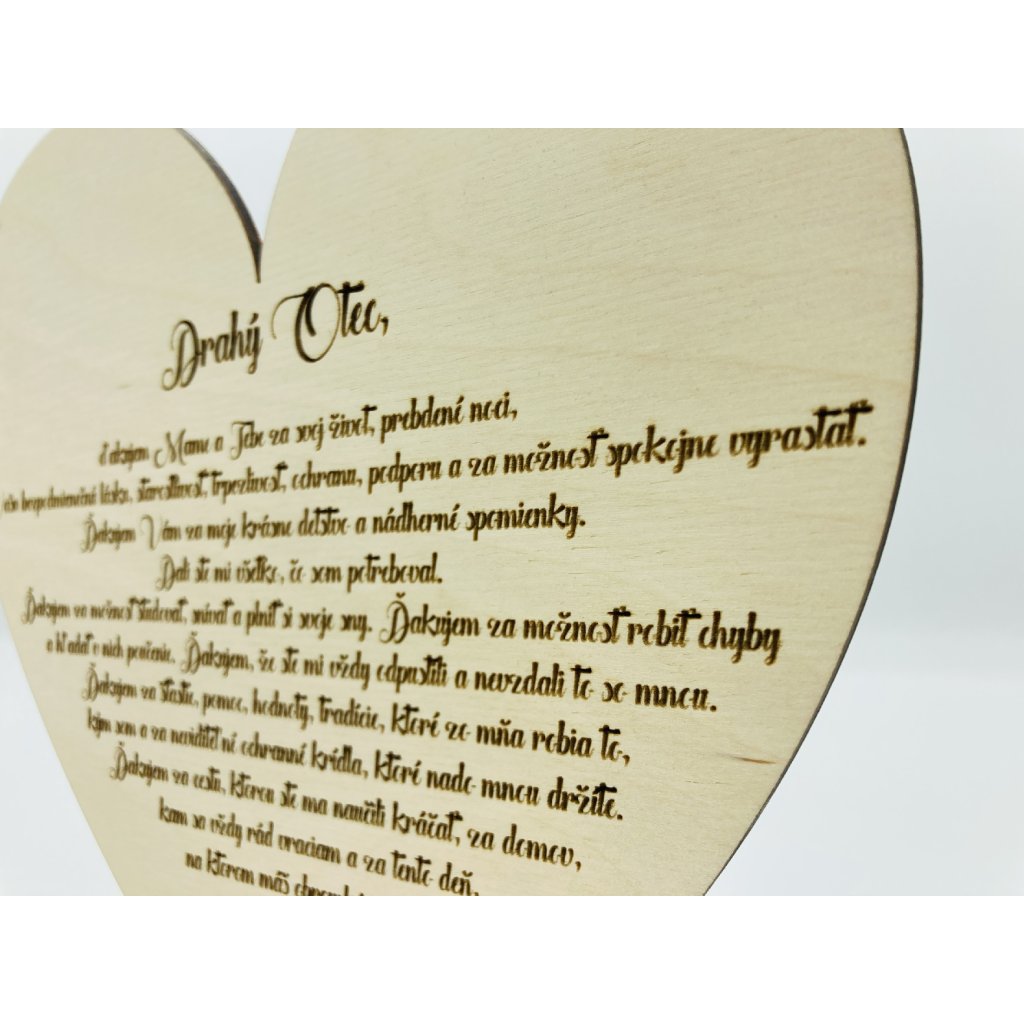 Drahý Otec,
ďakujem Mame a Tebe za svoj život, prebdené noci,
vašu bezpodmienečnú lásku, starostlivosť, trpezlivosť, ochranu, podporu a za možnosť spokojne vyrastať.
Ďakujem Vám za moje krásne detstvo a nádherné spomienky.
Dali ste mi všetko, čo som potreboval.
Ďakujem za možnosť študovať, snívať a plniť si svoje sny. Ďakujem za možnosť robiť chyby
a hľadať v nich poučenie. Ďakujem, že ste mi vždy odpustili a nevzdali to so mnou.
Ďakujem za šťastie, pomoc, hodnoty, tradície, ktoré zo mňa robia to,
kým som a za neviditeľné ochranné krídla, ktoré nado mnou držíte.
Ďakujem za cestu, ktorou ste ma naučili kráčať, za domov,
kam sa vždy rád vraciam a za tento deň,
na ktorom máš